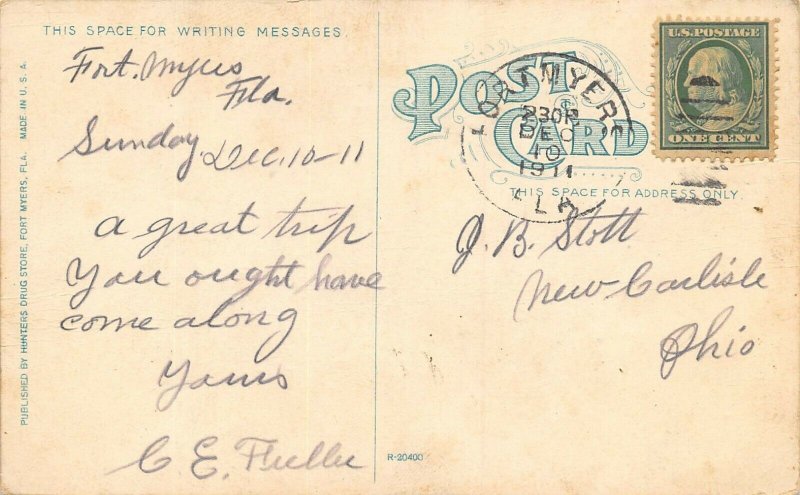 THIS SPACE FOR WRITING MESSAGES.
Fort. Myers
Fla.
Sunday Dec. 10-11
A great trip
You ought have
come along
Yours
C E. Fuller
PUBLISHED BY HUNTERS DRUG STORE, FORT MYERS, FLA. MADE IN U.S.A.
POST
CARD
FORT MYERS
230P
DEC
10
1911
FLA
U.S. POSTAGE
ONE CENT
THIS SPACE FOR ADDRESS ONLY.
J. B. Stott
New Carlisle
Ohio
R-20400